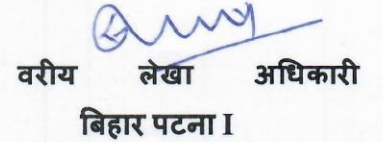 वरीय लेखा अधिकारी
बिहार पटना I